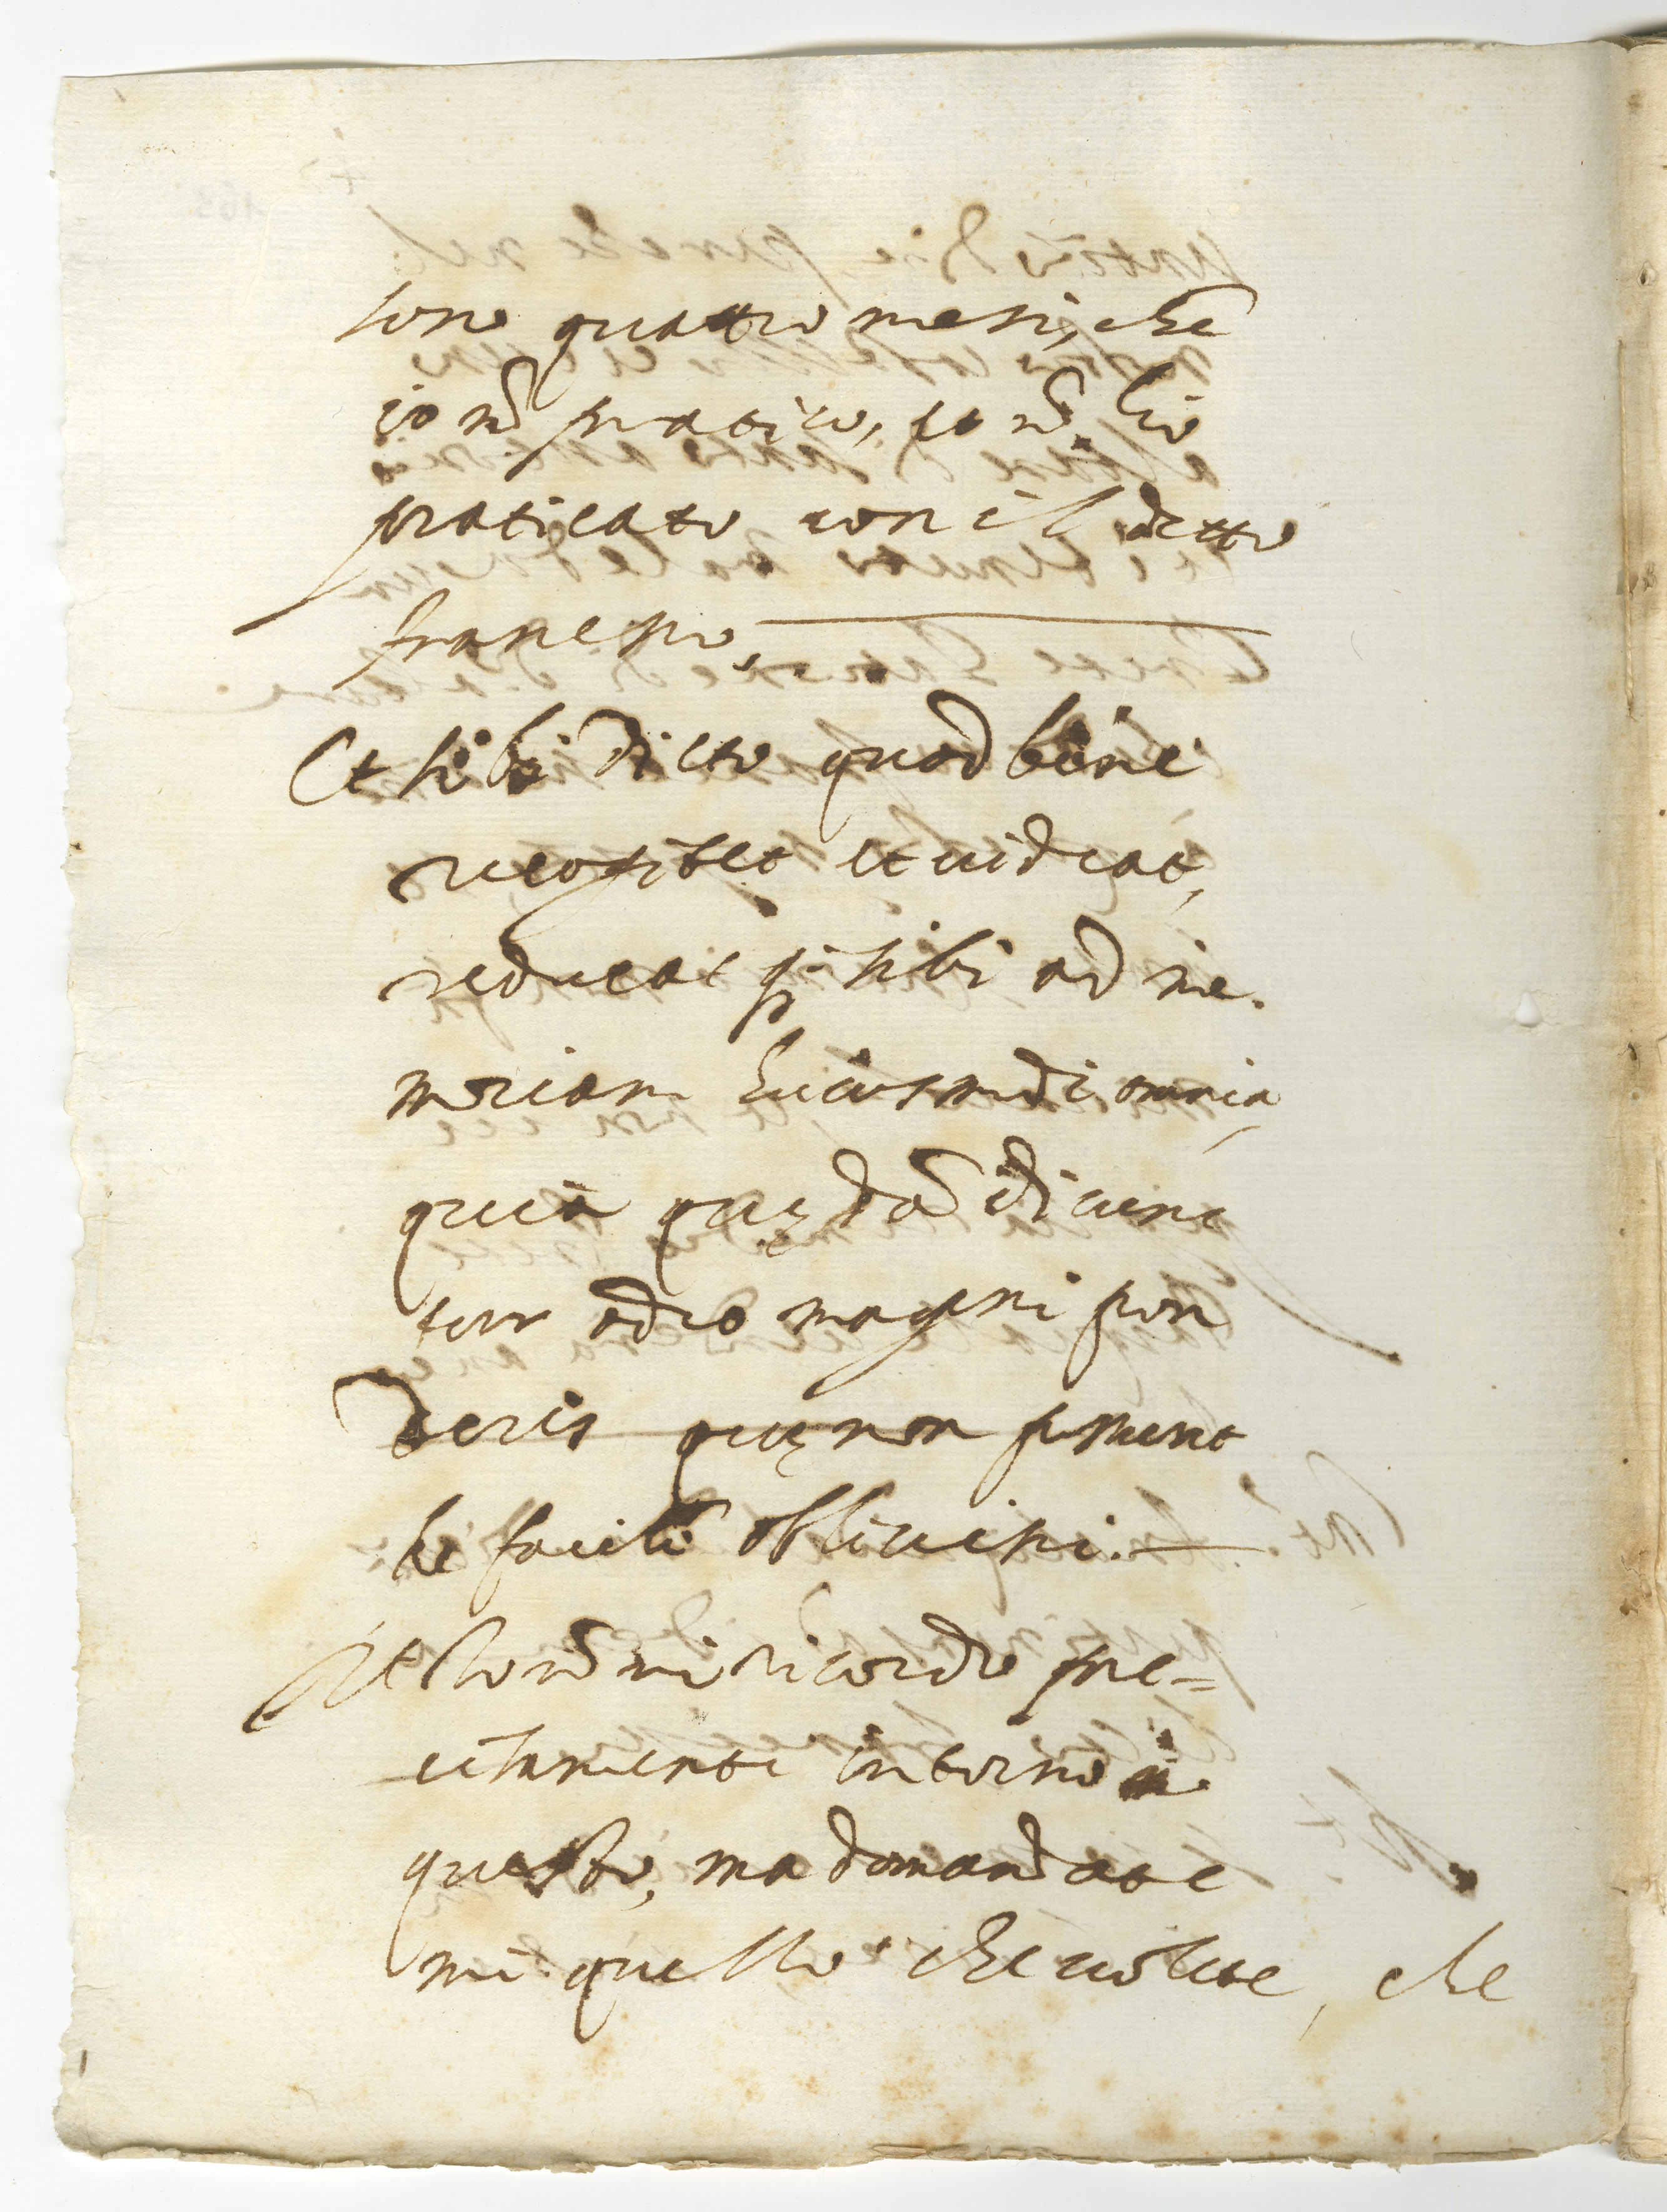 sono quattro mesi, che
io nõ pratico, et nõ ho
praticato con il detto
francesco
Et sibi dicto quod bene
recogitet et videat,
reducat q; sibi ad me.
moriam huiusmodi omnia,
quia quędã dicunt
tur adeo magni pon
deris quę non possunt
se facile oblivisci.
Io nõ mi ricordo pre=
cisamente intorno a
questo, ma domandate
mi quello che volete, che